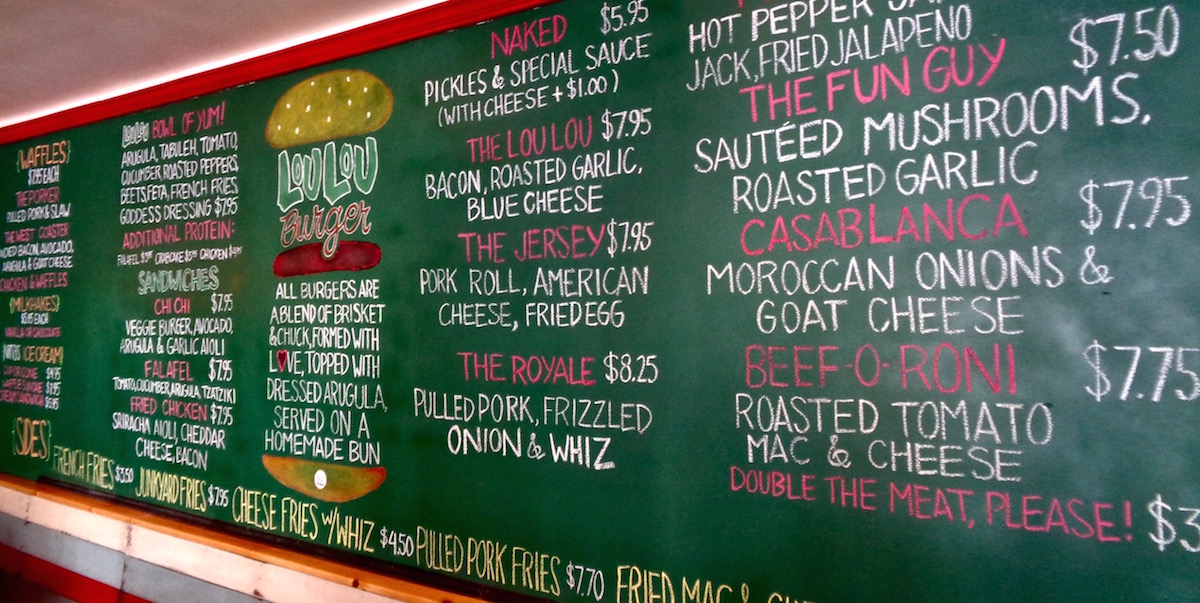 {WAFFLES}
$7.95 EACH
THE PORKER
PULLED PORK & SLAW
THE WEST COASTER
BACON, AVOCADO,
ARUGULA & GOAT CHEESE
CHICKEN & WAFFLES
{MILKSHAKES}
$5.95 EACH
VANILLA OR CHOCOLATE
ICE CREAM
CUP OR CONE
WAFFLE SUNDAE
LOULOU BOWL OF YUM!
ARUGULA, TABULEH, TOMATO,
CUCUMBER, ROASTED PEPPERS,
BEETS, FETA, FRENCH FRIES,
GODDESS DRESSING $7.95
ADDITIONAL PROTEIN:
FALAFEL CRABCAKE CHICKEN
SANDWICHES
CHI CHI $7.95
VEGGIE BURGER, AVOCADO,
ARUGULA & GARLIC AIOLI
FALAFEL $7.95
TOMATO, CUCUMBER, ARUGULA, TZATZIKI
FRIED CHICKEN $7.95
SRIRACHA AIOLI, CHEDDAR
CHEESE, BACON
LOULOU
Burger
ALL BURGERS ARE
A BLEND OF BRISKET
& CHUCK, FORMED WITH
LOVE, TOPPED WITH
DRESSED ARUGULA,
SERVED ON A
HOMEMADE BUN
NAKED $5.95
PICKLES & SPECIAL SAUCE
(WITH CHEESE + $1.00)
THE LOU LOU $7.95
BACON, ROASTED GARLIC,
BLUE CHEESE
THE JERSEY $7.95
PORK ROLL, AMERICAN
CHEESE, FRIED EGG
THE ROYALE $8.25
PULLED PORK, FRIZZLED
ONION & WHIZ
HOT PEPPER
JACK, FRIED JALAPENO
THE FUN GUY $7.50
SAUTÉED MUSHROOMS,
ROASTED GARLIC
CASABLANCA $7.95
MOROCCAN ONIONS &
GOAT CHEESE
BEEF-O-RONI $7.75
ROASTED TOMATO
MAC & CHEESE
DOUBLE THE MEAT, PLEASE! $3
{SIDES} FRENCH FRIES $3.50 JUNKYARD FRIES $7.95 CHEESE FRIES W/ WHIZ $4.50 PULLED PORK FRIES $7.70 FRIED MAC &